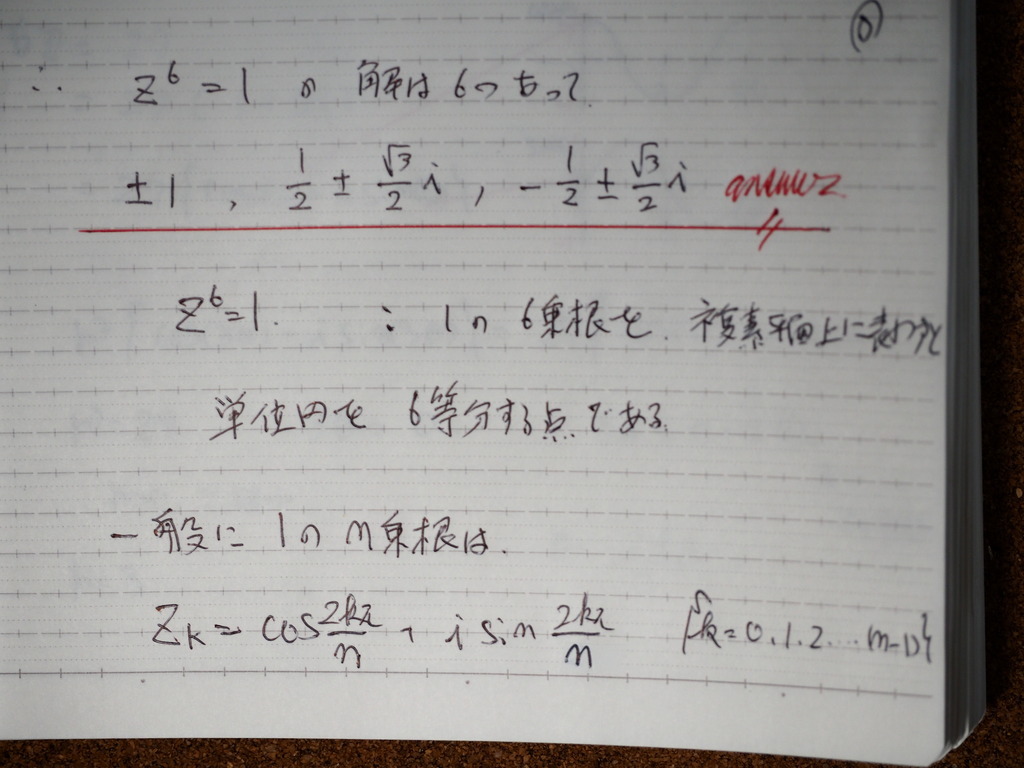 (0)
∴ z⁶ = 1 の 解は 6つ あって
±1 , 1/2 ± √3/2 i , - 1/2 ± √3/2 i answer
z⁶=1. : 1の 6乗根を. 複素平面上に表わすと
単位円を 6等分する点である.
一般に 1の n乗根は.
Zk = cos 2kπ/n + i sin 2kπ/n {k=0.1.2....n-1}